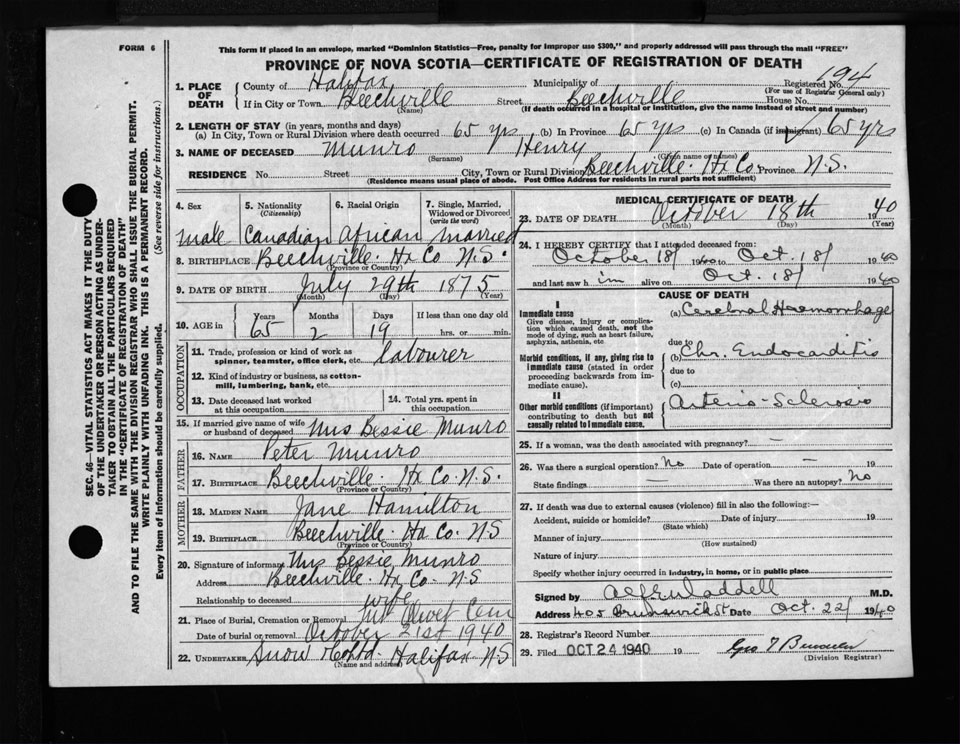 FORM 6
This form if placed in an envelope, marked "Dominion Statistics—Free, penalty for improper use $300," and properly addressed will pass through the mail "FREE"
PROVINCE OF NOVA SCOTIA—CERTIFICATE OF REGISTRATION OF DEATH
1. PLACE OF DEATH
County of Halifax Municipality of Registered No. 194
(For use of Registrar General only)
If in City or Town Beechville Street Beechville House No.
(Name) (If death occurred in a hospital or institution, give the name instead of street and number)
2. LENGTH OF STAY (in years, months and days)
(a) In City, Town or Rural Division where death occurred 65 yrs (b) In Province 65 yrs (c) In Canada (if immigrant) 65 yrs
3. NAME OF DECEASED Munro Henry
(Surname) (Given name or names)
RESIDENCE No. Street City, Town or Rural Division Beechville. Hx Co. Province N.S.
(Residence means usual place of abode. Post Office Address for residents in rural parts not sufficient)
4. Sex 5. Nationality (Citizenship) 6. Racial Origin 7. Single, Married, Widowed or Divorced (write the word)
male Canadian African married
8. BIRTHPLACE Beechville. Hx Co N.S.
(Province or Country)
9. DATE OF BIRTH July 29th 1875
(Month) (Day) (Year)
10. AGE in Years Months Days If less than one day old
65 2 19 hrs. or min.
OCCUPATION
11. Trade, profession or kind of work as spinner, teamster, office clerk, etc. labourer
12. Kind of industry or business, as cotton-mill, lumbering, bank, etc.
13. Date deceased last worked at this occupation 14. Total yrs. spent in this occupation
15. If married give name of wife or husband of deceased Mrs Bessie Munro
FATHER
16. NAME Peter Munro
17. BIRTHPLACE Beechville. Hx Co. N.S.
(Province or Country)
MOTHER
18. MAIDEN NAME Jane Hamilton
19. BIRTHPLACE Beechville. Hx Co. N.S
(Province or Country)
20. Signature of informant Mrs Bessie Munro
Address Beechville. Hx Co. N.S
Relationship to deceased wife
21. Place of Burial, Cremation or Removal Mt Olivet Cem
Date of burial or removal October 21st 1940
22. UNDERTAKER Snow & Co Ltd. Halifax N.S
(Name and address)
MEDICAL CERTIFICATE OF DEATH
23. DATE OF DEATH October 18th 1940
(Month) (Day) (Year)
24. I HEREBY CERTIFY that I attended deceased from:
October 18/ 1940 to Oct. 18/ 1940
and last saw him alive on Oct. 18/ 1940
CAUSE OF DEATH
I
Immediate cause (a) Cerebral Haemorrhage
Give disease, injury or complication which caused death, not the mode of dying, such as heart failure, asphyxia, asthenia, etc
due to
Morbid conditions, if any, giving rise to immediate cause (stated in order proceeding backwards from immediate cause).
(b) Chr. Endocarditis
due to
(c)
II
Other morbid conditions (if important) contributing to death but not causally related to immediate cause.
Arterio-Sclerosis
25. If a woman, was the death associated with pregnancy? —
26. Was there a surgical operation? No Date of operation — 19
State findings — Was there an autopsy? No
27. If death was due to external causes (violence) fill in also the following:—
Accident, suicide or homicide? Date of injury 19
(State which)
Manner of injury
(How sustained)
Nature of injury
Specify whether injury occurred in industry, in home, or in public place
Signed by Alfr Waddell M.D.
Address 405 Brunswick St Date Oct. 22/ 1940
28. Registrar's Record Number
29. Filed OCT 24 1940 19 Geo
(Division Registrar)
SEC. 46—VITAL STATISTICS ACT MAKES IT THE DUTY
OF THE UNDERTAKER OR PERSON ACTING AS UNDER-
TAKER TO OBTAIN ALL THE PARTICULARS REQUIRED
IN THE "CERTIFICATE OF REGISTRATION OF DEATH"
AND TO FILE THE SAME WITH THE DIVISION REGISTRAR WHO SHALL ISSUE THE BURIAL PERMIT.
WRITE PLAINLY WITH UNFADING INK. THIS IS A PERMANENT RECORD.
Every item of information should be carefully supplied. (See reverse side for instructions.)